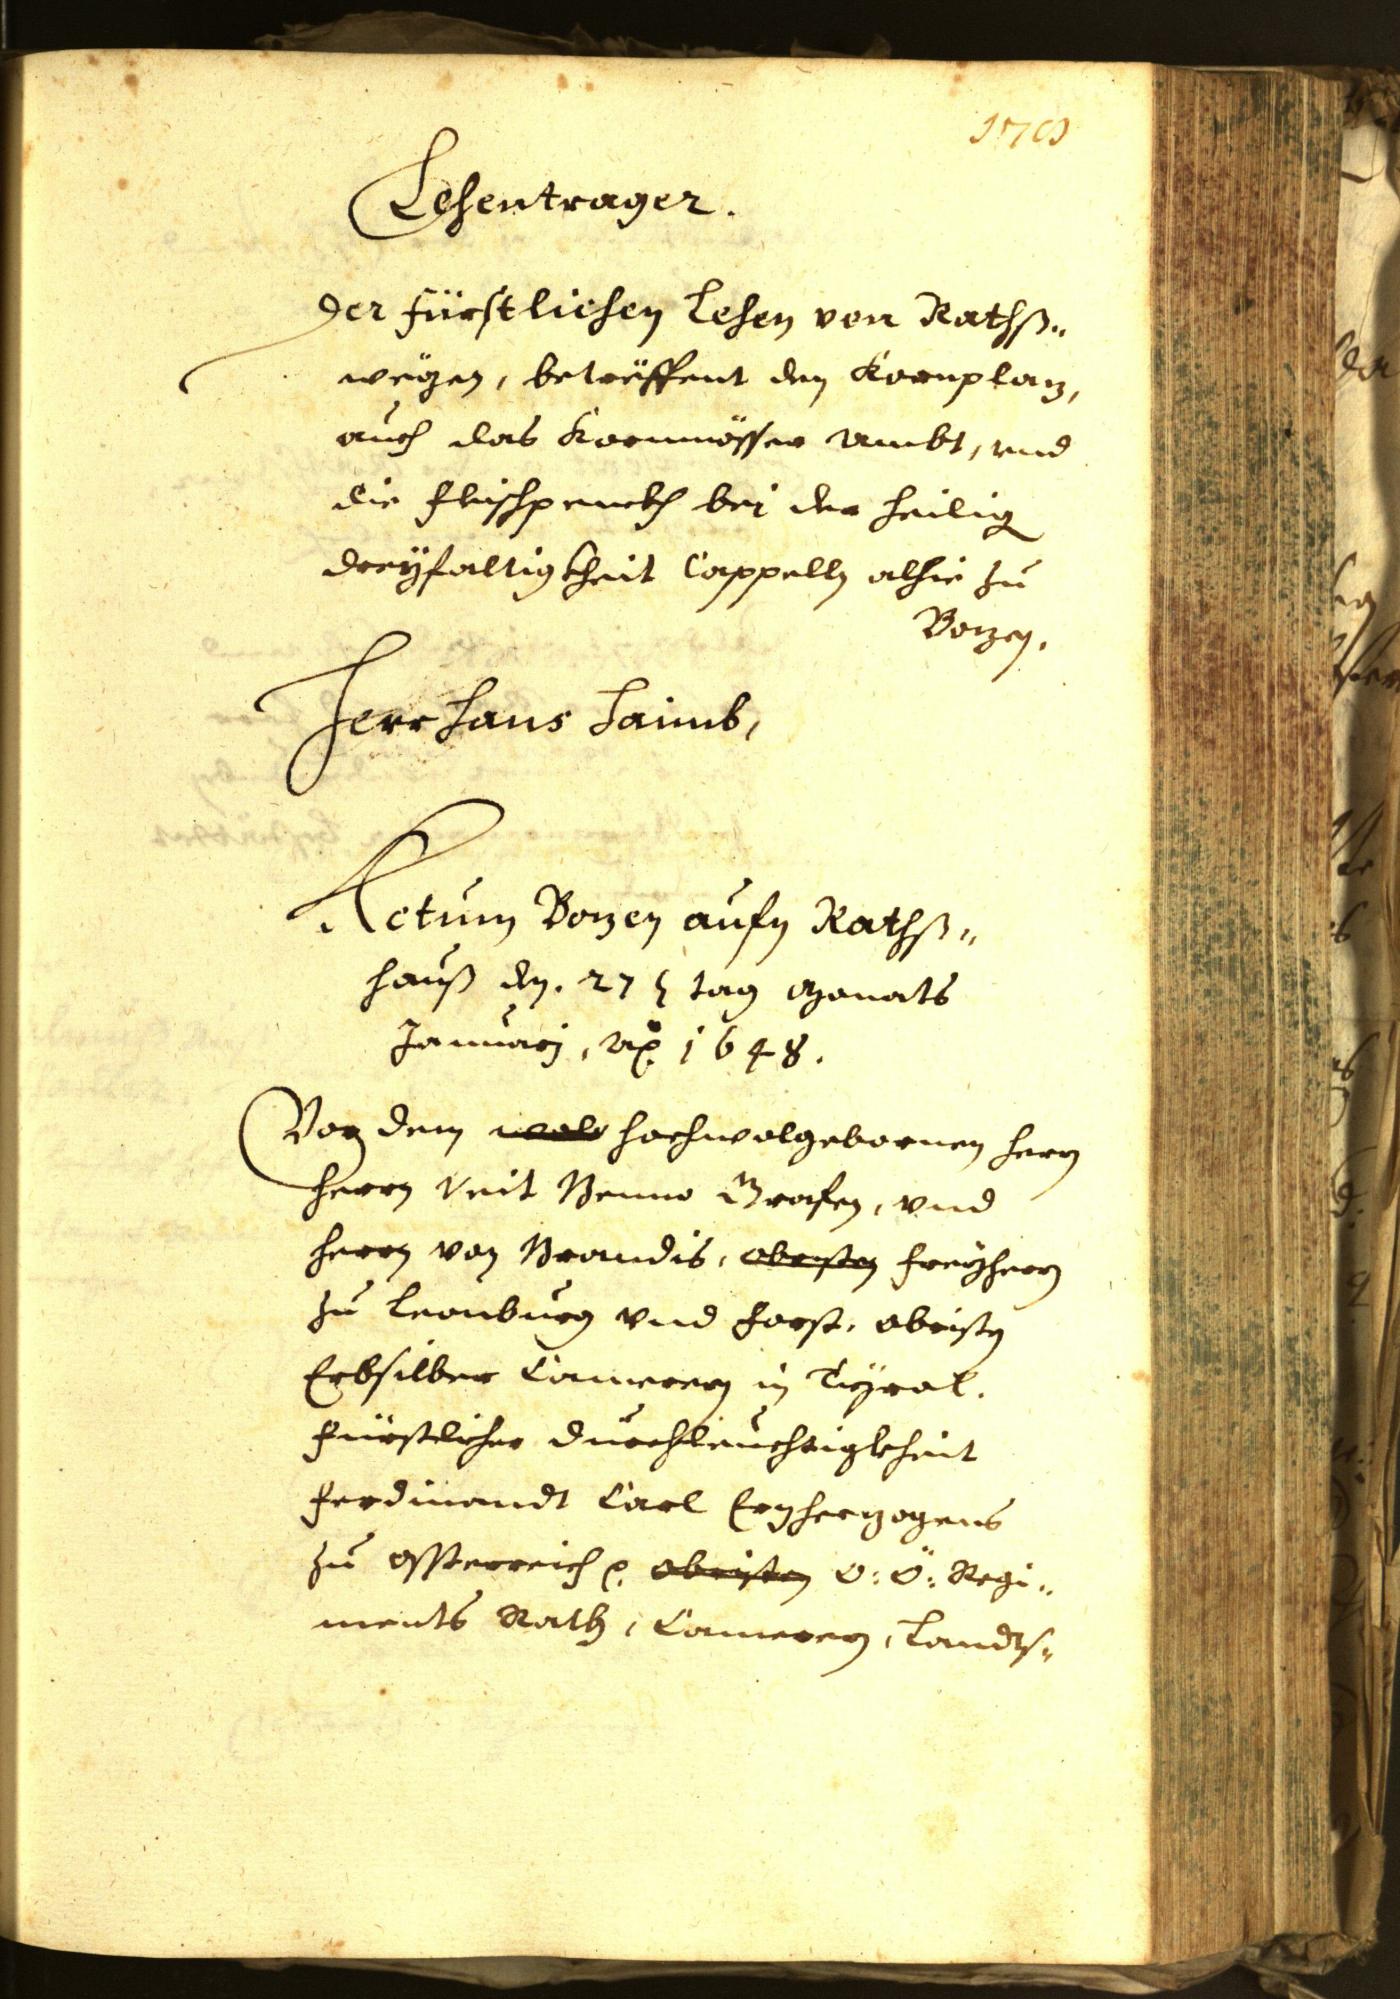 Lehentrager.
Der fürstlichen Lehen von Rathß„
wegen, betreffent den Kornplaz,
auch das Kornmösser Ambt, vnd
die fleischpenckh bei der heilig
dreÿfaltigkheit Cappelln alhie zu
Bozen.
Herr Hans Haimb,
Actum Bozen aufn Rathß„
hauß den. 27 tag Monats
Januarj, Ao. 1648.
Vor dem wol hochwolgebornen herrn
herrn Veit Benno Grafen, vnd
herrn von Brandis, obristen freÿherrn
zu Leonburg vnd forst, obristen
Erbsilber Camerern in Tÿrol.
fürstlicher durchleuchtigkheit
ferdinandt Carl Erzherzogens
zu Össterreich p. obristen O: Ö: Regi„
ments Rath, Camerern, Landts„